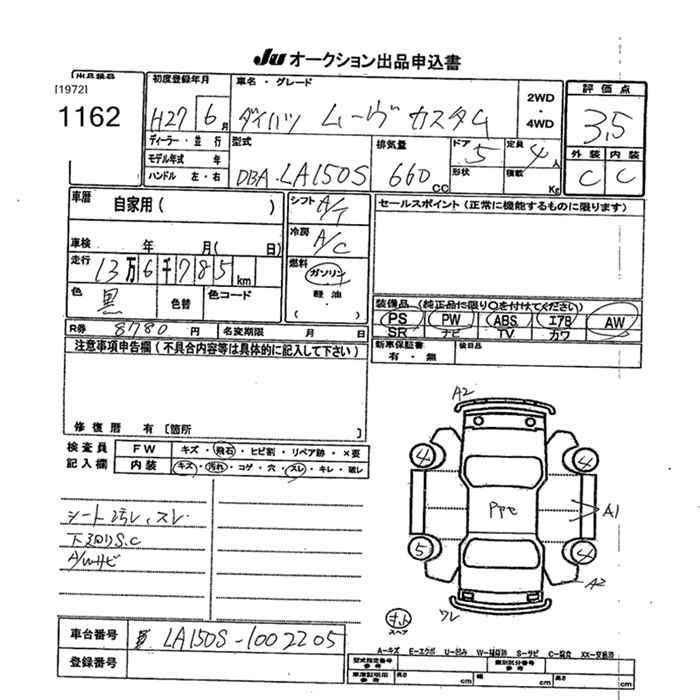 Ju オークション出品申込書
出品番号
[1972]
1162
初度登録年月
H27 6月
車名・グレード
ダイハツ ムーヴ カスタム
2WD
・
4WD
評価点
3.5
外装 内装
C C
ディーラー・並行
モデル年式 年
ハンドル 左・右
型式
DBA-LA150S
排気量
660cc
ドア 5
形状
定員 4人
積載 Kg
車歴
自家用( )
シフト A/T
冷房 A/C
セールスポイント(正常に機能するものに限ります)
車検 年 月( 日)
走行 13万6千785km
燃料
ガソリン
軽油
( )
色 黒
色替
色コード
装備品(純正品に限り○を付けてください)
PS PW ABS エアB AW
SR ナビ TV カワ
R券 8780円 名変期限 月 日
新車保証書
有・無
後日品
注意事項申告欄(不具合内容等は具体的に記入して下さい)
修復歴 有〔箇所 〕
検査員
記入欄
FW キズ・飛石・ヒビ割・リペア跡・×要
内装 キズ・汚れ・コゲ・穴・スレ・キレ・破レ
シート汚レ、スレ
下廻りS.C
A/Wサビ
A2
4 4
PPC
A1
5 4
A2
ワレ
スペア
車台番号 LA150S-1002205
登録番号
A-キズ E-エクボ U-凹み W-補修跡 S-サビ C-腐食 XX-交換済
型式指定番号
参考
類別区分番号
参考
車庫証明用
参考
長さ cm 幅 cm 高さ cm